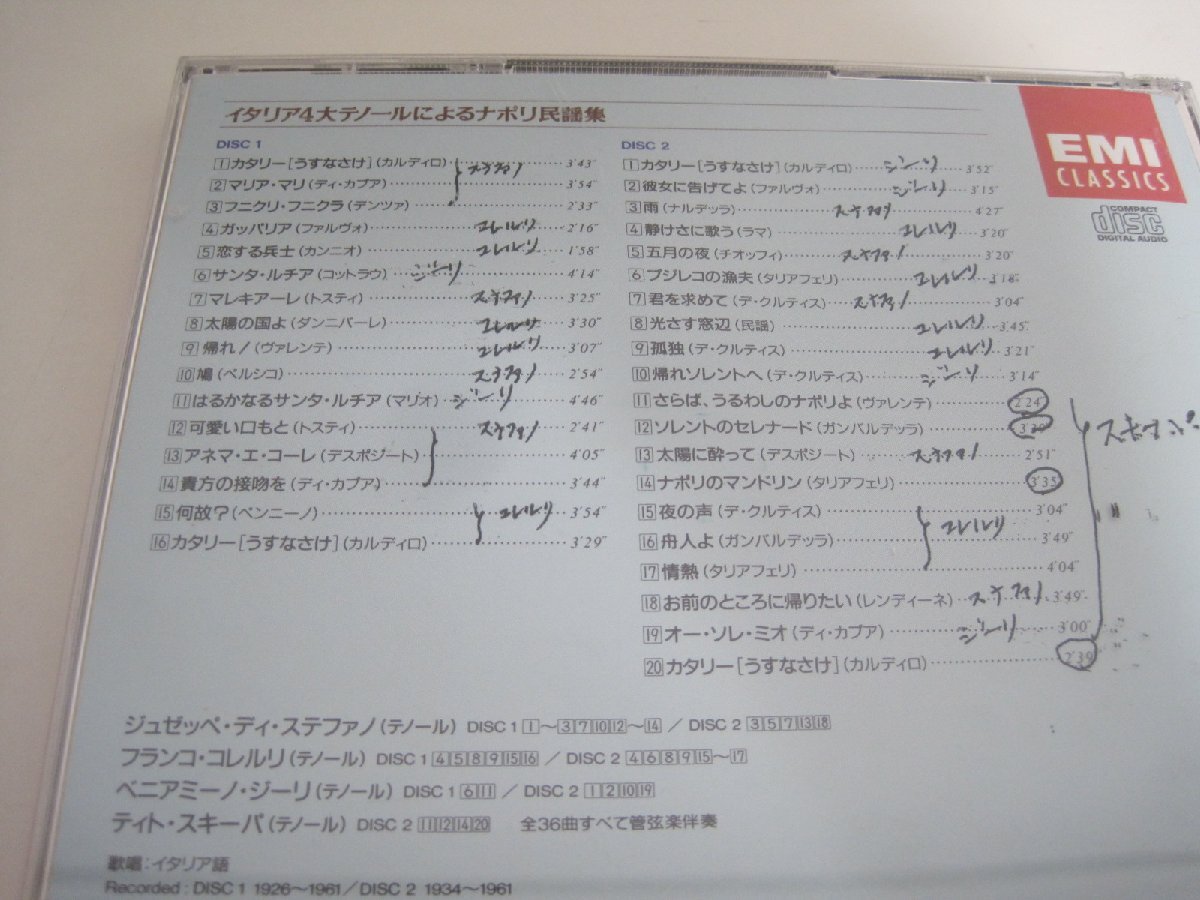 イタリア4大テノールによるナポリ民謡集
EMI
CLASSICS
COMPACT
disc
DIGITAL AUDIO
DISC 1
1 カタリー[うすなさけ](カルディロ) 3'43"
2 マリア・マリ(ディ・カプア) 3'54"
ステファノ
3 フニクリ・フニクラ(デンツァ) 2'33"
4 ガッパリア(ファルヴォ) コレルリ 2'16"
5 恋する兵士(カンニオ) コレルリ 1'58"
6 サンタ・ルチア(コットラウ) ジーリ 4'14"
7 マレキアーレ(トスティ) ステファノ 3'25"
8 太陽の国よ(ダンニバーレ) コレルリ 3'30"
9 帰れ!(ヴァレンテ) コレルリ 3'07"
10 鳩(ペルシコ) ステファノ 2'54"
11 はるかなるサンタ・ルチア(マリオ) ジーリ 4'46"
12 可愛い口もと(トスティ) ステファノ 2'41"
13 アネマ・エ・コーレ(デスポジート) 4'05"
14 貴方の接吻を(ディ・カプア) 3'44"
15 何故?(ペンニーノ) コレルリ 3'54"
16 カタリー[うすなさけ](カルディロ) 3'29"
DISC 2
1 カタリー[うすなさけ](カルディロ) ジーリ 3'52"
2 彼女に告げてよ(ファルヴォ) ジーリ 3'15"
3 雨(ナルデッラ) ステファノ 4'27"
4 静けさに歌う(ラマ) コレルリ 3'20"
5 五月の夜(チオッフィ) ステファノ 3'20"
6 プジレコの漁夫(タリアフェリ) コレルリ 3'18"
7 君を求めて(デ・クルティス) ステファノ 3'04"
8 光さす窓辺(民謡) コレルリ 3'45"
9 孤独(デ・クルティス) コレルリ 3'21"
10 帰れソレントへ(デ・クルティス) ジーリ 3'14"
11 さらば、うるわしのナポリよ(ヴァレンテ) 2'24"
12 ソレントのセレナード(ガンバルデッラ)
スキーパ
13 太陽に酔って(デスポジート) ステファノ 2'51"
14 ナポリのマンドリン(タリアフェリ) 3'35"
15 夜の声(デ・クルティス) 3'04"
コレルリ
16 舟人よ(ガンバルデッラ) 3'49"
17 情熱(タリアフェリ) 4'04"
18 お前のところに帰りたい(レンディーネ) ステファノ 3'49"
19 オー・ソレ・ミオ(ディ・カプア) ジーリ 3'00"
20 カタリー[うすなさけ](カルディロ) 2'39"
ジュゼッペ・ディ・ステファノ(テノール) DISC 1 1〜3 7 10 12〜14 / DISC 2 3 5 7 13 18
フランコ・コレルリ(テノール) DISC 1 4 5 8 9 15 16 / DISC 2 4 6 8 9 15〜17
ベニアミーノ・ジーリ(テノール) DISC 1 6 11 / DISC 2 1 2 10 19
ティト・スキーパ(テノール) DISC 2 11 12 14 20 全36曲すべて管弦楽伴奏
歌唱:イタリア語
Recorded : DISC 1 1926〜1961/DISC 2 1934〜1961